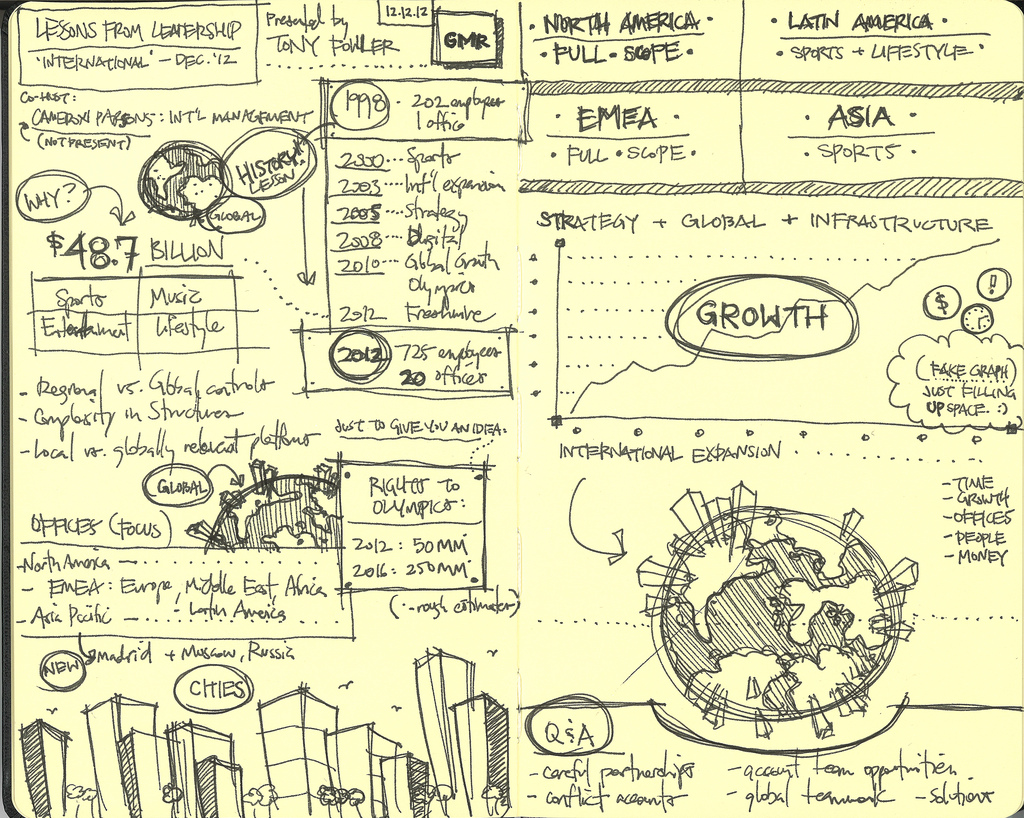 LESSONS FROM LEADERSHIP
"INTERNATIONAL" - DEC. '12
Presented by
TONY FOWLER
12.12.12
GMR
CO-HOST:
CAMERON PARSONS: INT'L MANAGEMENT
(NOT PRESENT)
HISTORY
LESSON
GLOBAL
WHY?
$48.7 BILLION
Sports
Music
Entertainment
Lifestyle
- Regional vs. Global controls
- Complexity in Structures
- Local vs. globally relevant platforms
1998 · 202 employees
1 office
2000 ... Sports
2003 .... Int'l expansion
2005 .... Strategy
2008 ... Digital
2010 .... Global Growth
Olympics
2012
2012 725 employees
20 offices
JUST TO GIVE YOU AN IDEA:
RIGHTS TO
OLYMPICS:
2012: 50MM
2016: 250MM
(·-rough estimates)
GLOBAL
OFFICES (FOCUS)
- North America
- EMEA: Europe, Middle East, Africa
- Asia Pacific
- Latin America
NEW
Madrid + Moscow, Russia
CITIES
· NORTH AMERICA ·
· FULL · SCOPE ·
LATIN AMERICA ·
· SPORTS + LIFESTYLE ·
· EMEA ·
· FULL · SCOPE ·
· ASIA ·
· SPORTS ·
STRATEGY + GLOBAL + INFRASTRUCTURE
GROWTH
$
!
(FAKE GRAPH)
JUST FILLING
UP SPACE. :)
INTERNATIONAL EXPANSION
- TIME
- GROWTH
- OFFICES
- PEOPLE
- MONEY
Q&A
- careful partnerships
- conflict accounts
- account team opportunities
- global teamwork
- Solutions